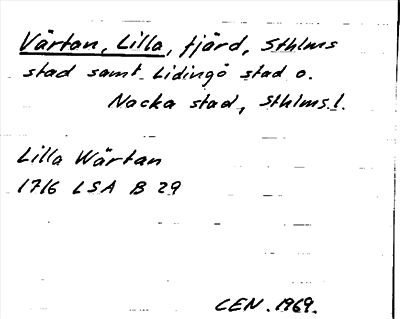 Värtan, Lilla, fjärd, Sthlms
stad samt Lidingö stad o.
Nacka stad, Sthlms l.
Lilla Wärtan
1716 LSA B 29
CEN. 1969.